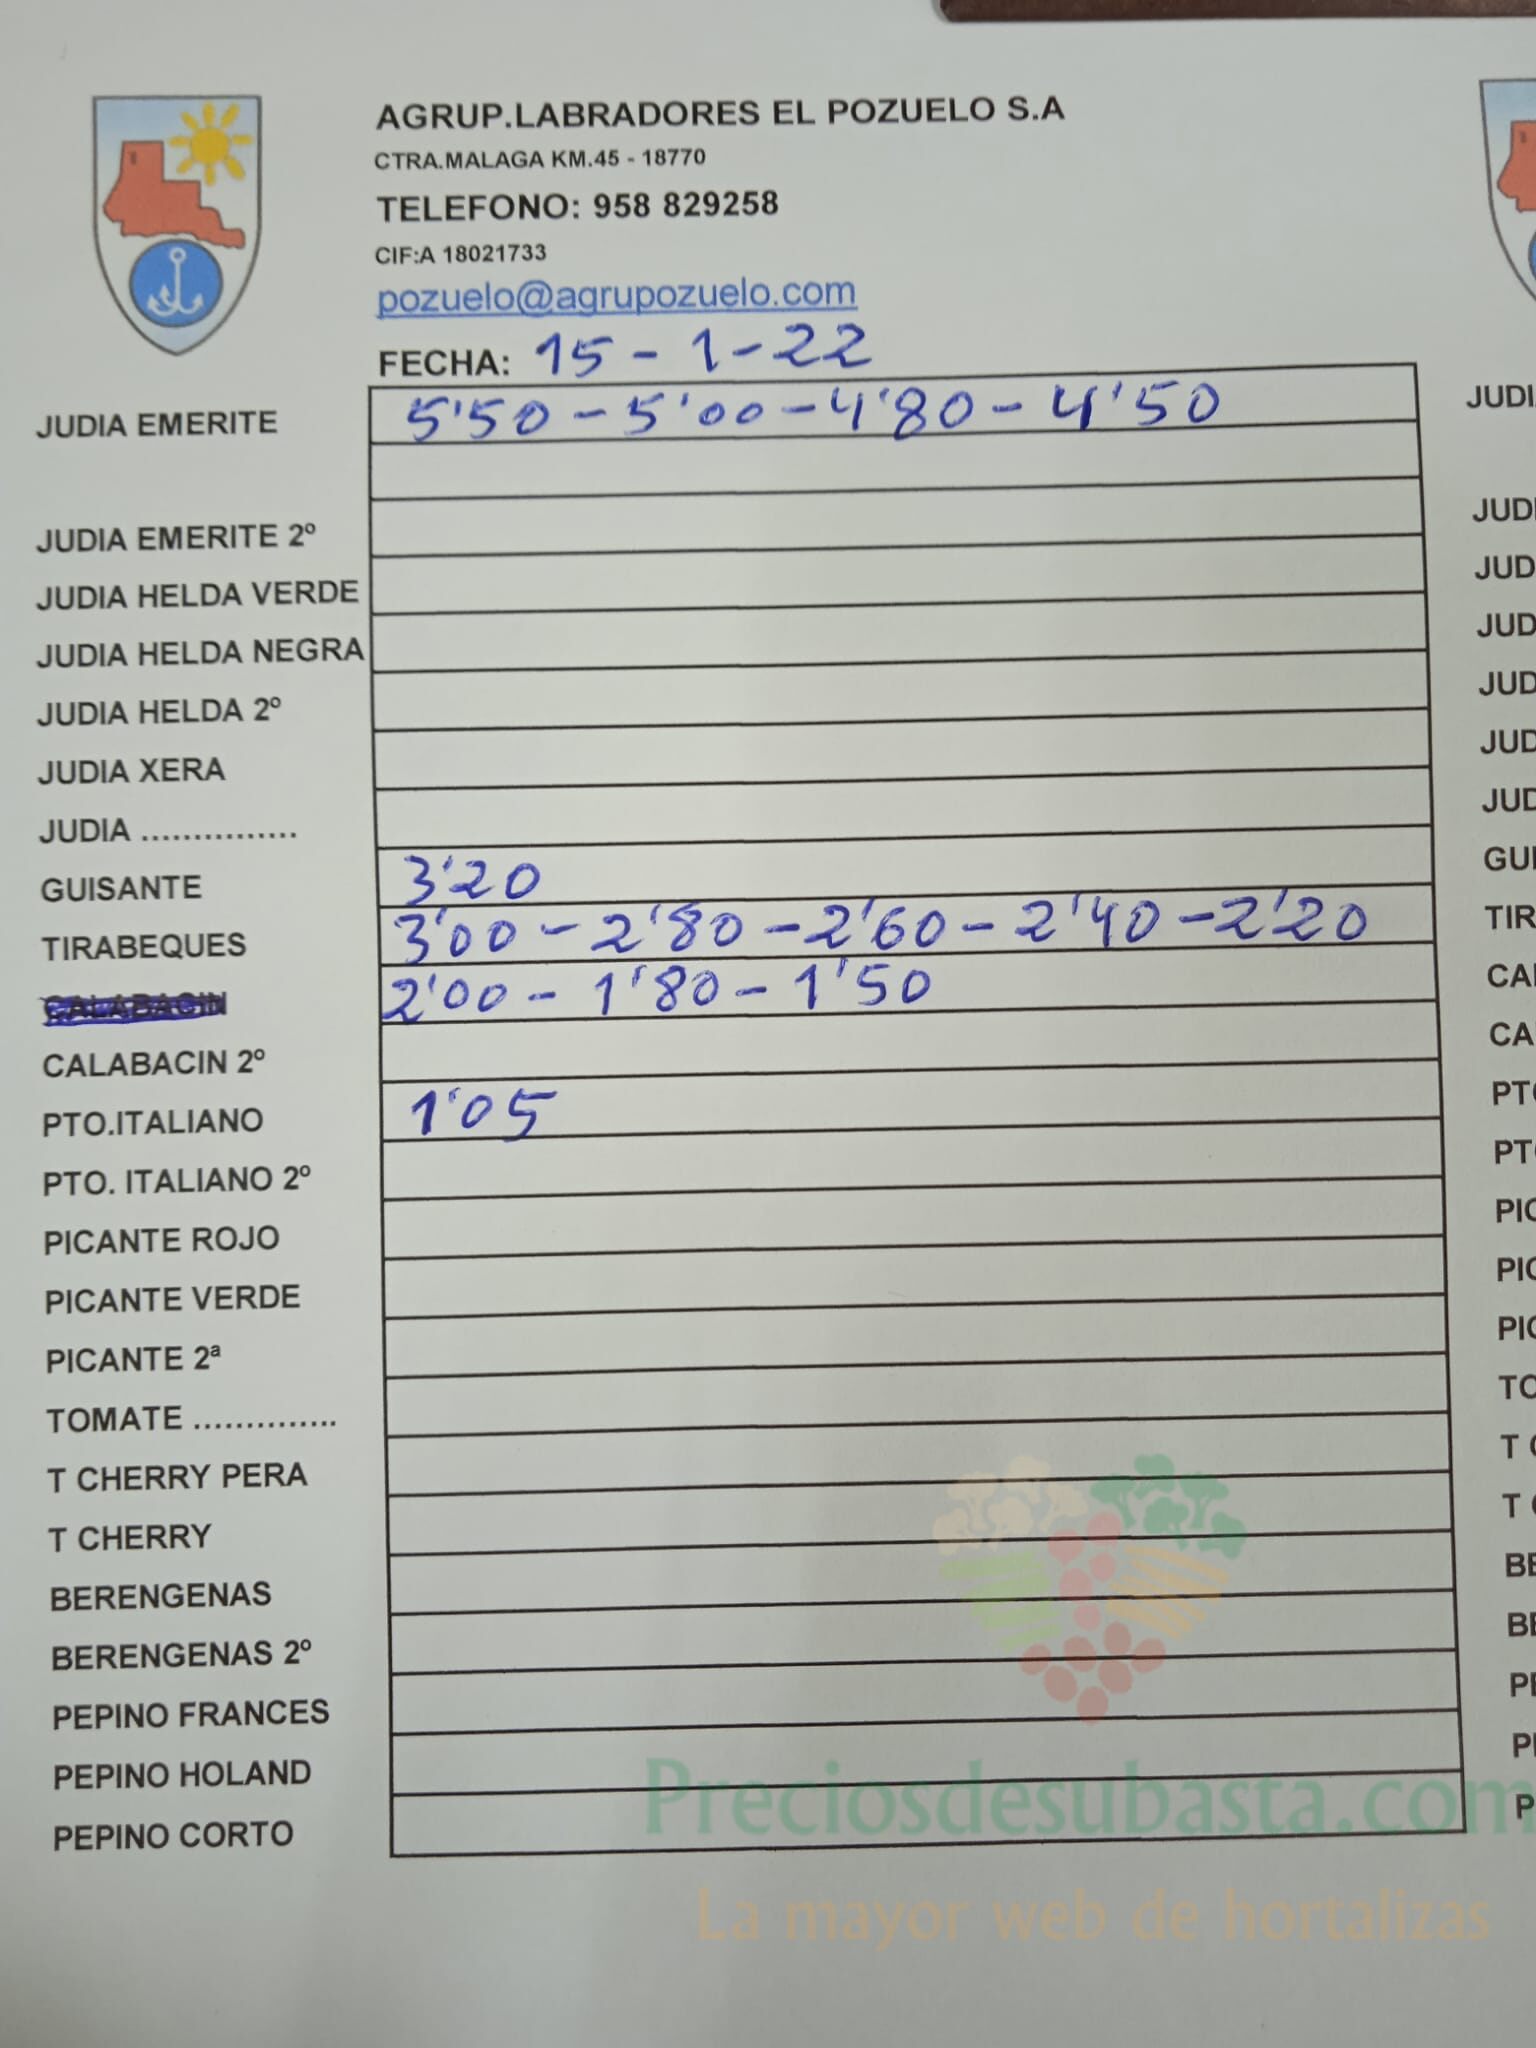 AGRUP.LABRADORES EL POZUELO S.A
CTRA.MALAGA KM.45 - 18770
TELEFONO: 958 829258
CIF:A 18021733
pozuelo@agrupozuelo.com
FECHA: 15-1-22
JUDIA EMERITE 5'50 - 5'00 - 4'80 - 4'50 JUDI
JUDIA EMERITE 2º JUDI
JUDIA HELDA VERDE JUD
JUDIA HELDA NEGRA JUD
JUDIA HELDA 2º JUD
JUDIA XERA JUD
JUDIA ............... JUD
GUISANTE 3'20 GUI
TIRABEQUES 3'00 - 2'80 - 2'60 - 2'40 - 2'20 TIR
CALABACIN 2'00 - 1'80 - 1'50 CAL
CALABACIN 2º CA
PTO.ITALIANO 1'05 PTO
PTO. ITALIANO 2º PTO
PICANTE ROJO PIC
PICANTE VERDE PIC
PICANTE 2ª PIC
TOMATE .............. TO
T CHERRY PERA T C
T CHERRY T C
BERENGENAS BE
BERENGENAS 2º BE
PEPINO FRANCES PE
PEPINO HOLAND PE
PEPINO CORTO P
Preciosdesubasta.com
La mayor web de hortalizas